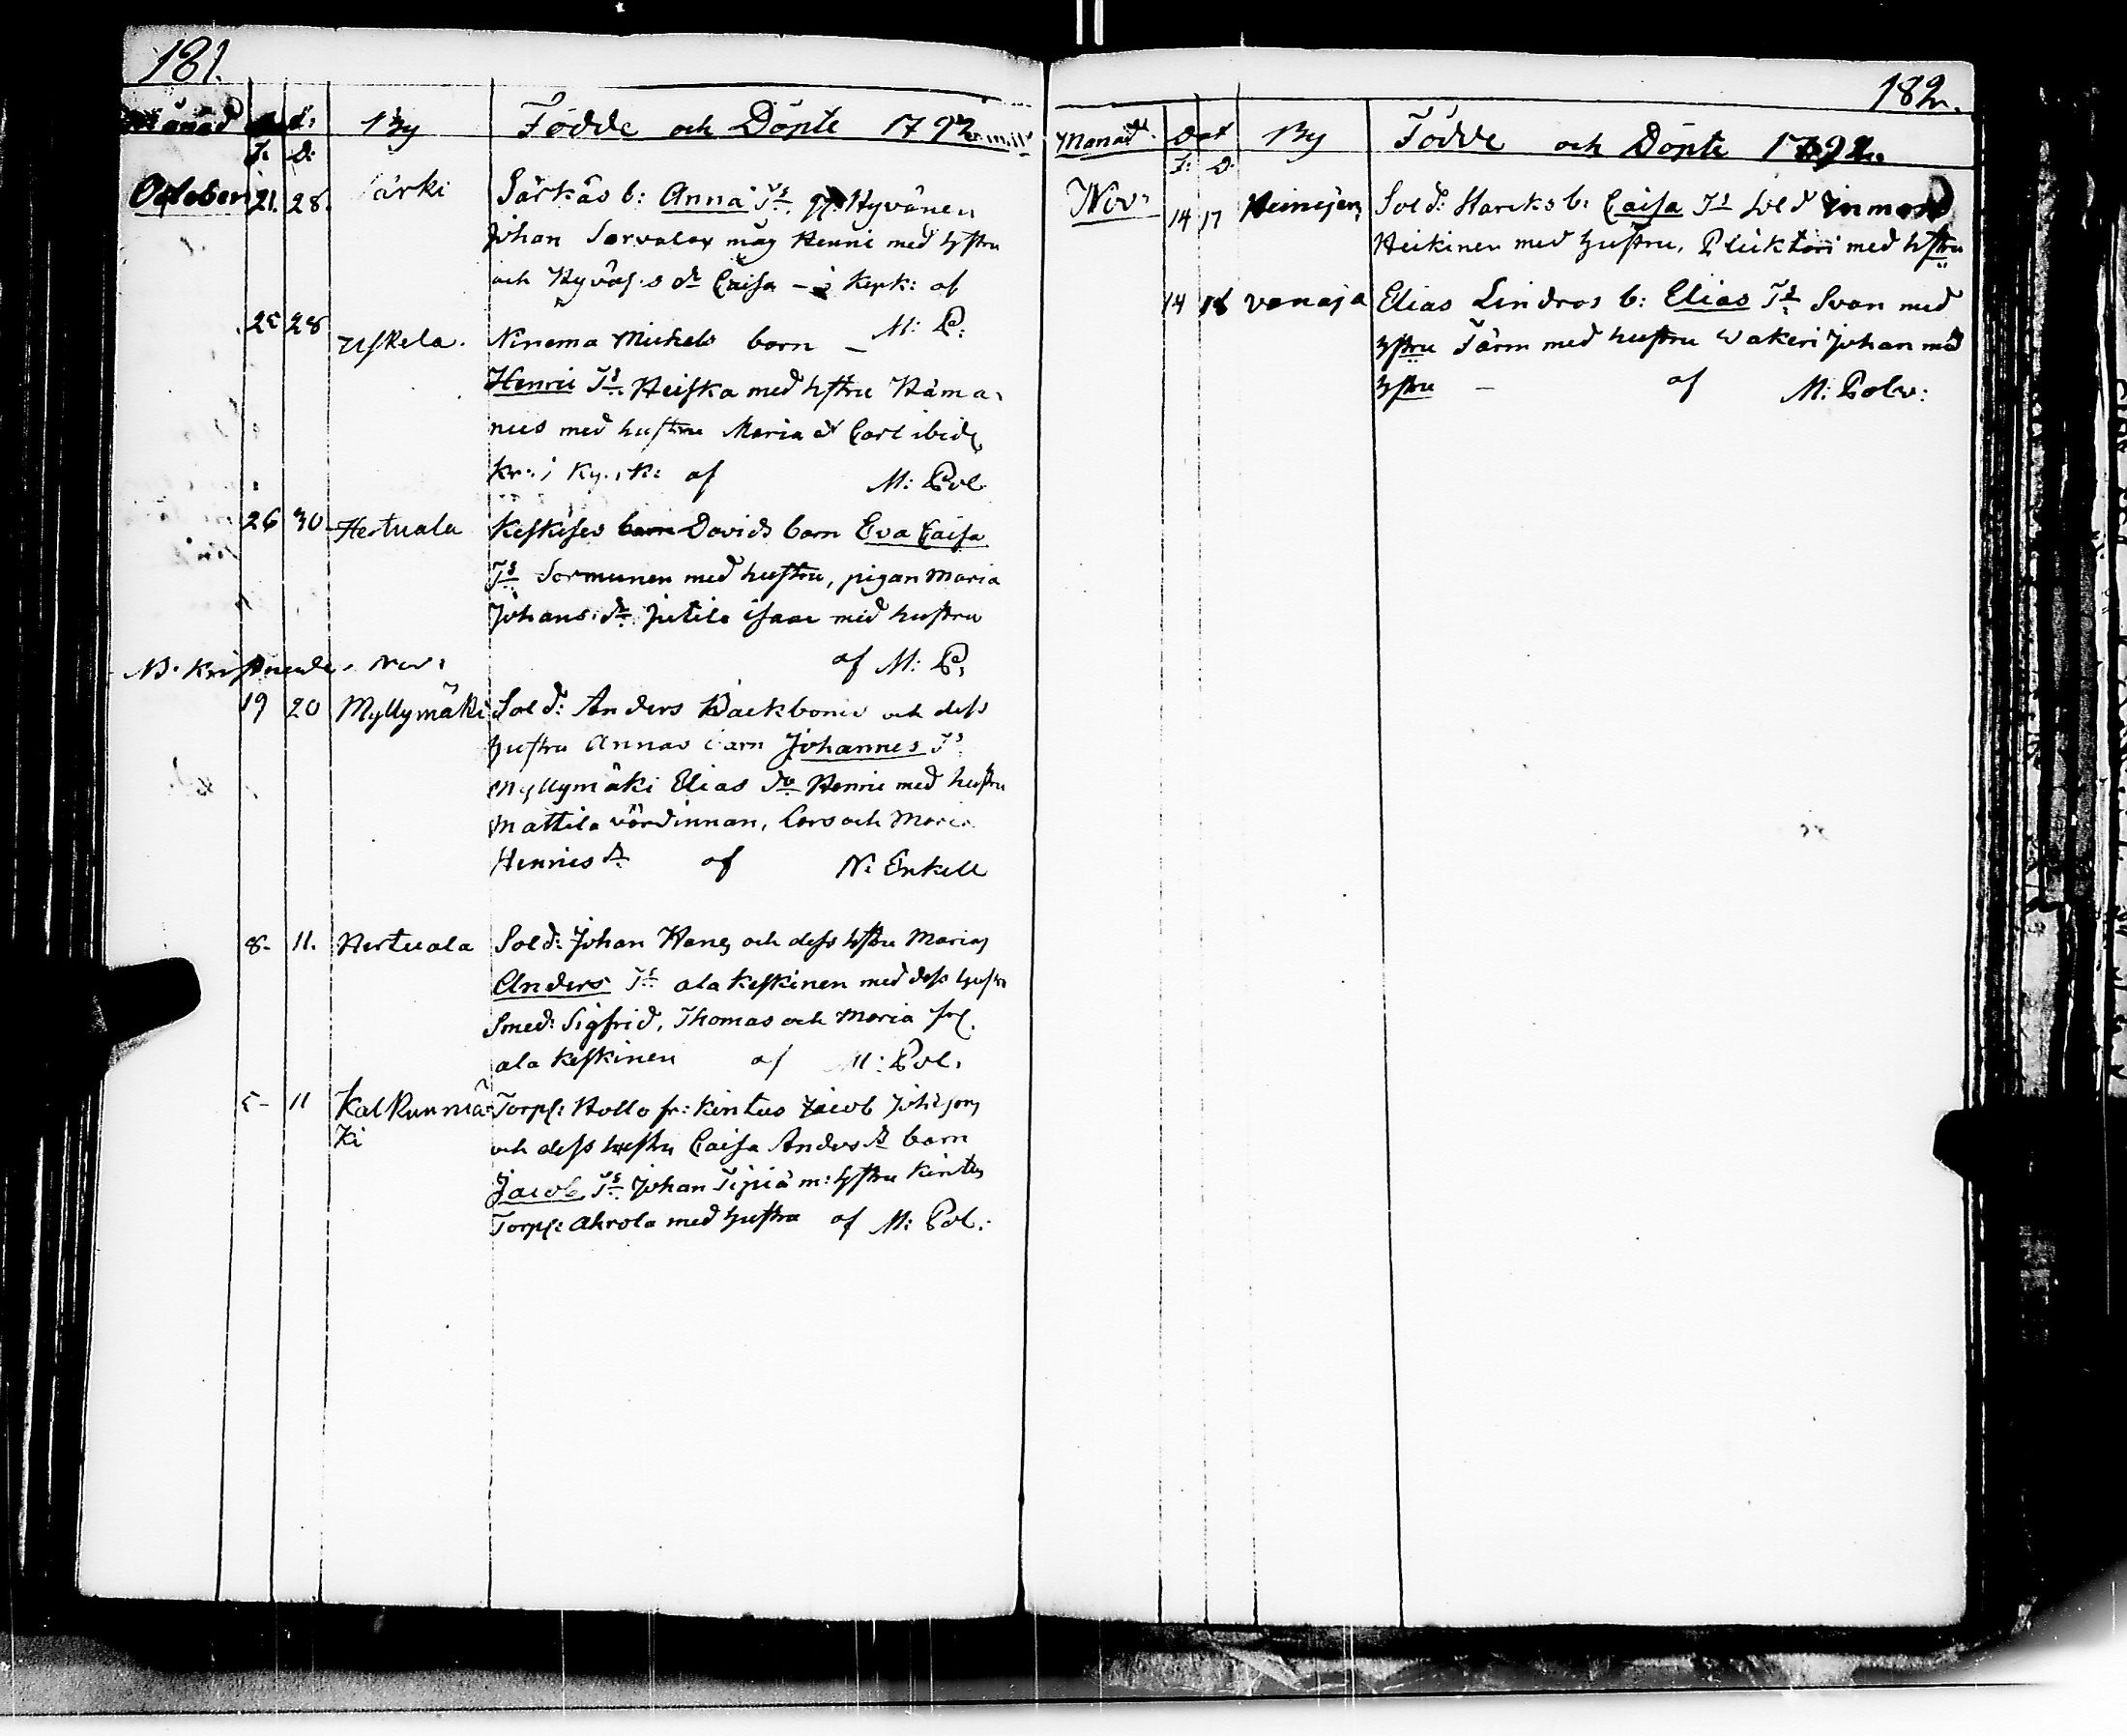 181.
Månad d: By Födde och Döpte 1792
F: D:
October 21. 28. Särki Särkäs b: Anna Ts. Hyvänen
Johan Sarvalax måg Henric med hstru
och Hyväs.s dr Caisa – i Kyrk: af
M: P:
25 28 Uskela. Ninema Michels barn –
Henric Ts. Heiska med hstru Häma-
nies med hustru Maria dr Carl ibid.
kr. i Ky.rk: af M: Pol
26 30 Hertuala Keskises barn Davids barn Eva Caisa
Ts Sormunen med hustru, pigan Maria
Johans dr. Jutila Isaac med hustru
af M: P.
NB. Kristnade. Nov:
19 20 Myllymäki Sold: Anders Backboms och dess
hustru Annas barn Johannes Ts
Myllymäki Elias do Henric med hustru
Mattila värdinnan, Lars och Maria
Henrics dr. af N: Enkell
8. 11. Hertuala Sold: Johan Hane och dess hstru Marias
Anders Ts ala Keskinen med dess hustru
Smed: Sigfrid, Thomas och Maria
ala Keskinen af M: Pol.
5– 11 Kalkunmä-
ki
Torps: Hollo fr: Kintus Jacob Johsson
och dess hustru Caisa Anders dr barn
Jacob Ts. Johan Tipiä m: hstru Kintus
Torps: Ahrola med hustru af M: Pol.
182.
Månad. Dat By Födde och Döpte 1792.
F: D:
Nov: 14 17 Heinsjen Sold: Harcks b: Caisa Ts Sold
Heikinen med hustru, med hstru
14 18 Vanaja Elias Lindros b: Elias Ts Svan med
hstru Färm med hustru Wakeri Johan med
hstru – af M: Polv: